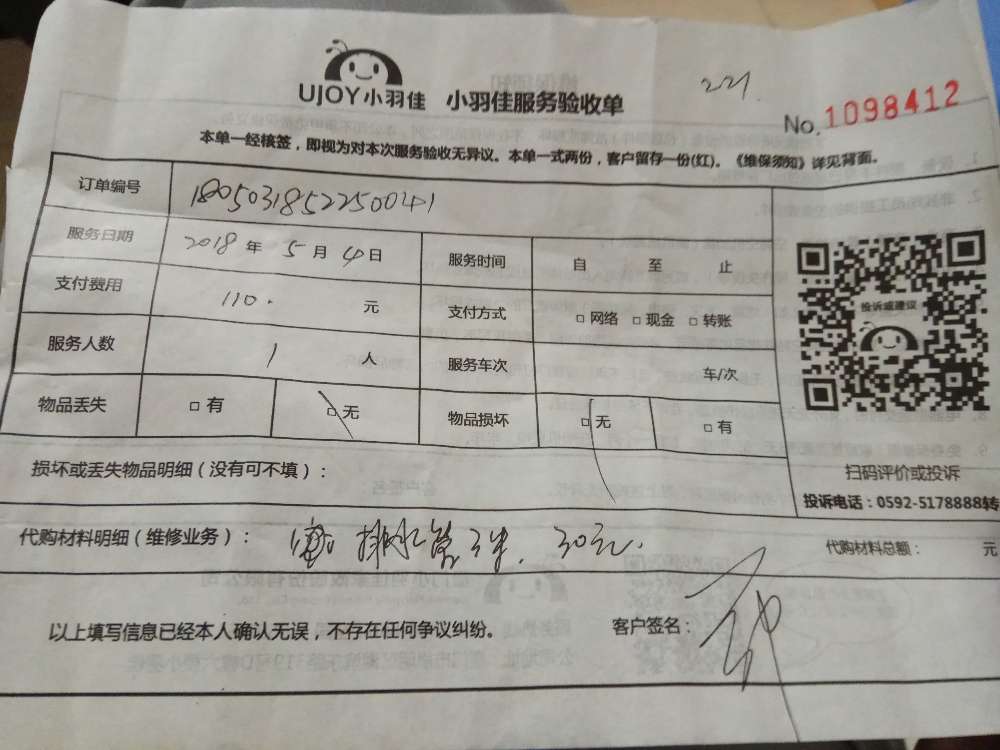 UJOY小羽佳 小羽佳服务验收单
221.
No. 1098412
本单一经核签，即视为对本次服务验收无异议。本单一式两份，客户留存一份(红)。《维保须知》详见背面。
订单编号 18050318522500241
服务日期 2018 年 5 月 4 日 服务时间 自 至 止
支付费用 110. 元 支付方式 □ 网络 □ 现金 □ 转账
投诉或建议
服务人数 1 人 服务车次 车/次
物品丢失 □ 有 □ 无 物品损坏 □ 无 □ 有
损坏或丢失物品明细（没有可不填）：
扫码评价或投诉
投诉电话：0592-5178888转
代购材料明细（维修业务）： 排水管 30元.
代购材料总额： 元
以上填写信息已经本人确认无误，不存在任何争议纠纷。 客户签名：